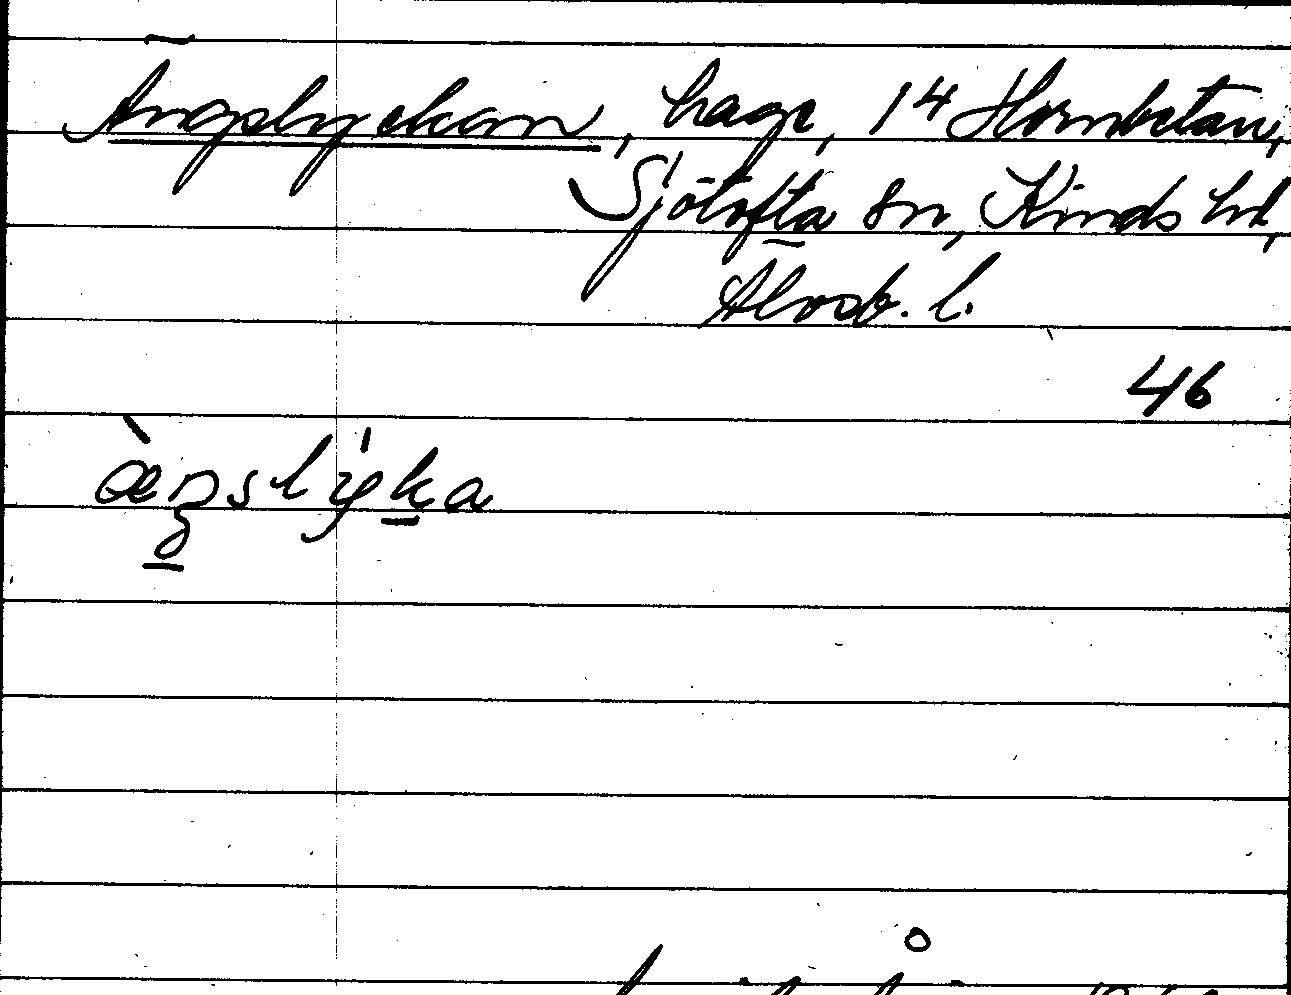 Ängslyckan, hage, 14 Hornbetan,
Sjötofta sn, Kinds hd,
Älvsb. l.
46
æ̀ŋslýka